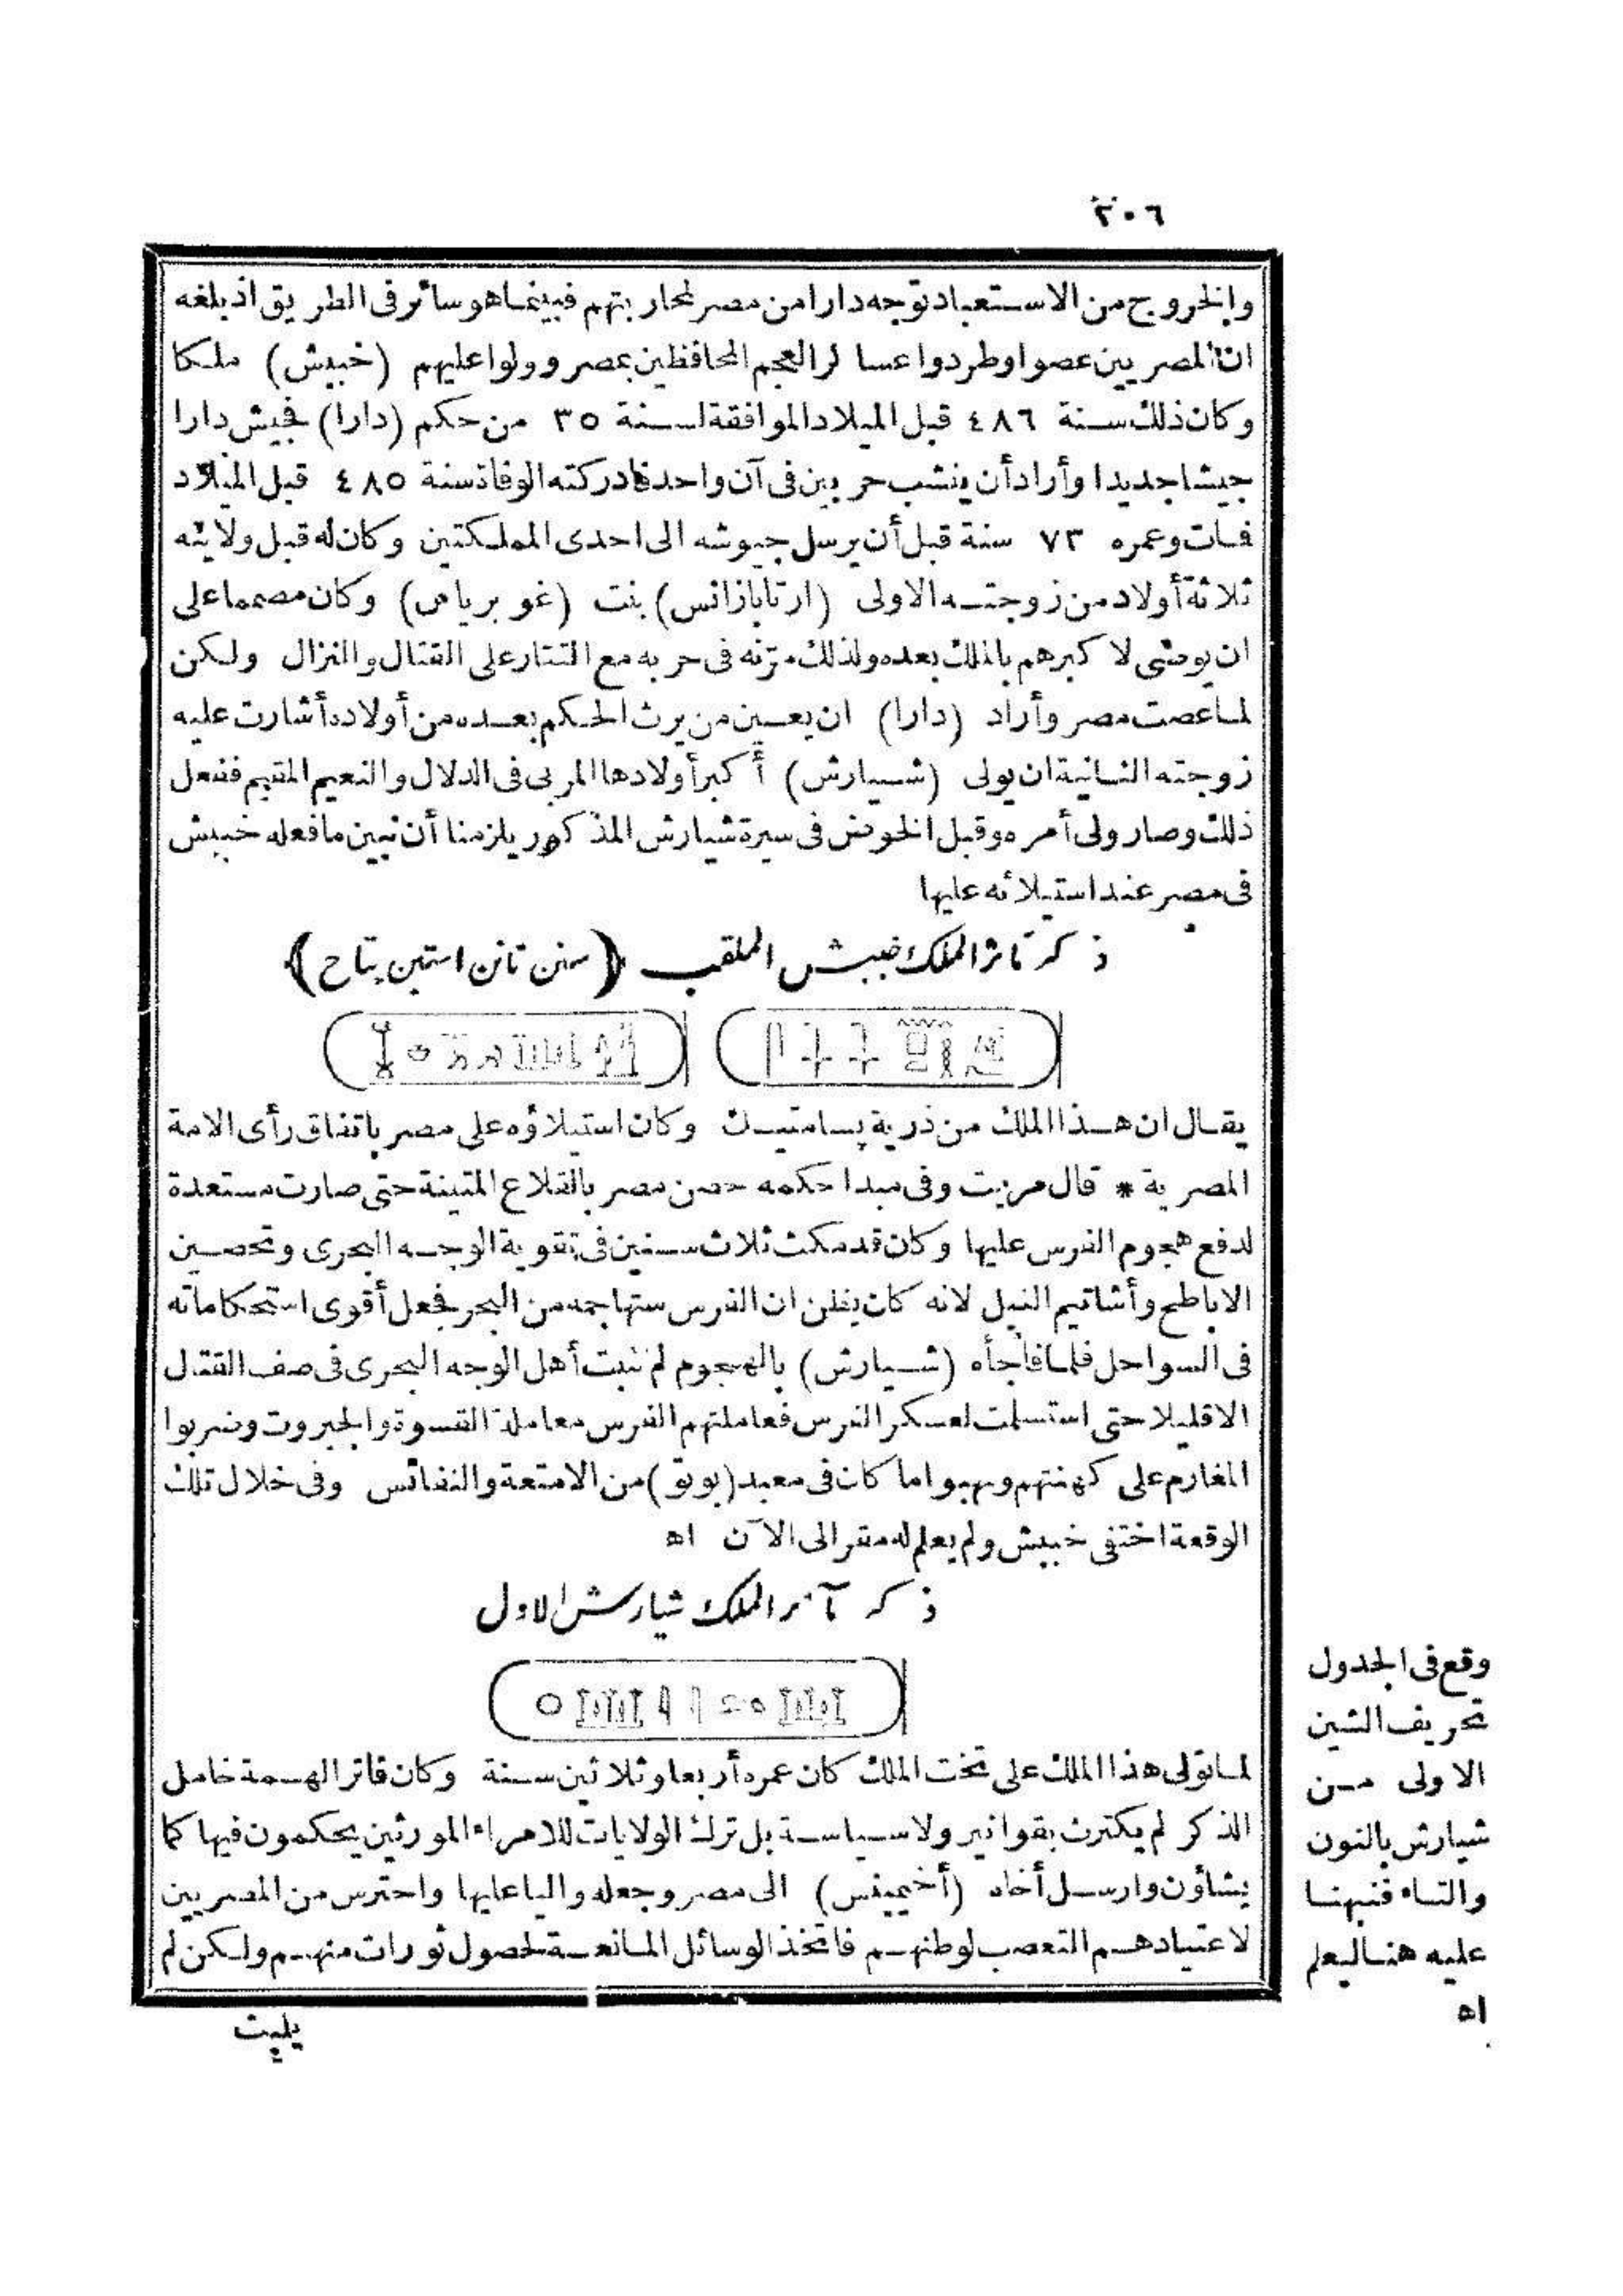 ٢٠٦
والخروج من الاستعباد توجه دارا من مصر لمحاربتهم فبينما هو سائر فى الطريق اذ بلغه
ان المصريين عصوا وطردوا عساكر العجم المحافظين بمصر وولوا عليهم (خبيش) ملكا
وكان ذلك سنة ٤٨٦ قبل الميلاد الموافقة لسنة ٣٥ من حكم (دارا) فجيش دارا
جيشا جديدا وأراد أن ينشب حربين فى آن واحد فادركته الوفاة سنة ٤٨٥ قبل الميلاد
فمات وعمره ٧٣ سنة قبل أن يرسل جيوشه الى احدى المملكتين وكان له قبل ولايته
ثلاثة أولاد من زوجته الاولى (ارتابازانس) بنت (غوبرياس) وكان مصمما على
ان يوصى لاكبرهم بالملك بعده ولذلك مرّنه فى حربه مع التتار على القتال والنزال ولكن
لما عصت مصر وأراد (دارا) ان يعين من يرث الحكم بعده من أولاده أشارت عليه
زوجته الثانية ان يولى (شيارش) أكبر أولادها المربى فى الدلال والنعيم المقيم ففعل
ذلك وصار ولى أمره وقبل الخوض فى سيرة شيارش المذكور يلزمنا أن نبين ما فعله خبيش
فى مصر عند استيلائه عليها
ذكر مآثر الملك خبيش الملقب (سنن تانن استبن پتاح)
يقال ان هذا الملك من ذرية پسامتيك وكان استيلاؤه على مصر باتفاق رأى الامة
المصرية * قال مريت وفى مبدا حكمه حصن مصر بالقلاع المتينة حتى صارت مستعدة
لدفع هجوم الفرس عليها وكان قد مكث ثلاث سنين فى تقوية الوجه البحرى وتحصين
الاباطح وأشاتيم النيل لانه كان يظن ان الفرس ستهاجمه من البحر فجعل أقوى استحكاماته
فى السواحل فلما فاجأه (شيارش) بالهجوم لم تثبت أهل الوجه البحرى فى صف القتال
الا قليلا حتى استسلمت لعسكر الفرس فعاملتهم الفرس معاملة القسوة والجبروت وضربوا
المغارم على كهنتهم ونهبوا ما كان فى معبد (بوتو) من الامتعة والنفائس وفى خلال تلك
الوقعة اختفى خبيش ولم يعلم له مقر الى الآن اه
ذكر مآثر الملك شيارش الاول
لما تولى هذا الملك على تخت الملك كان عمره أربعا وثلاثين سنة وكان فاتر الهمة خامل
الذكر لم يكترث بقوانين ولا سياسة بل ترك الولايات للامراء المورثين يحكمون فيها كما
يشاؤن وارسل أخاه (أخيمينس) الى مصر وجعله واليا عليها واحترس من المصريين
لاعتيادهم التعصب لوطنهم فاتخذ الوسائل المانعة لحصول ثورات منهم ولكن لم
يلبث
وقع فى الجدول
تحريف الشين
الاولى من
شيارش بالنون
والتاء فنبهنا
عليه هنا ليعلم
اه